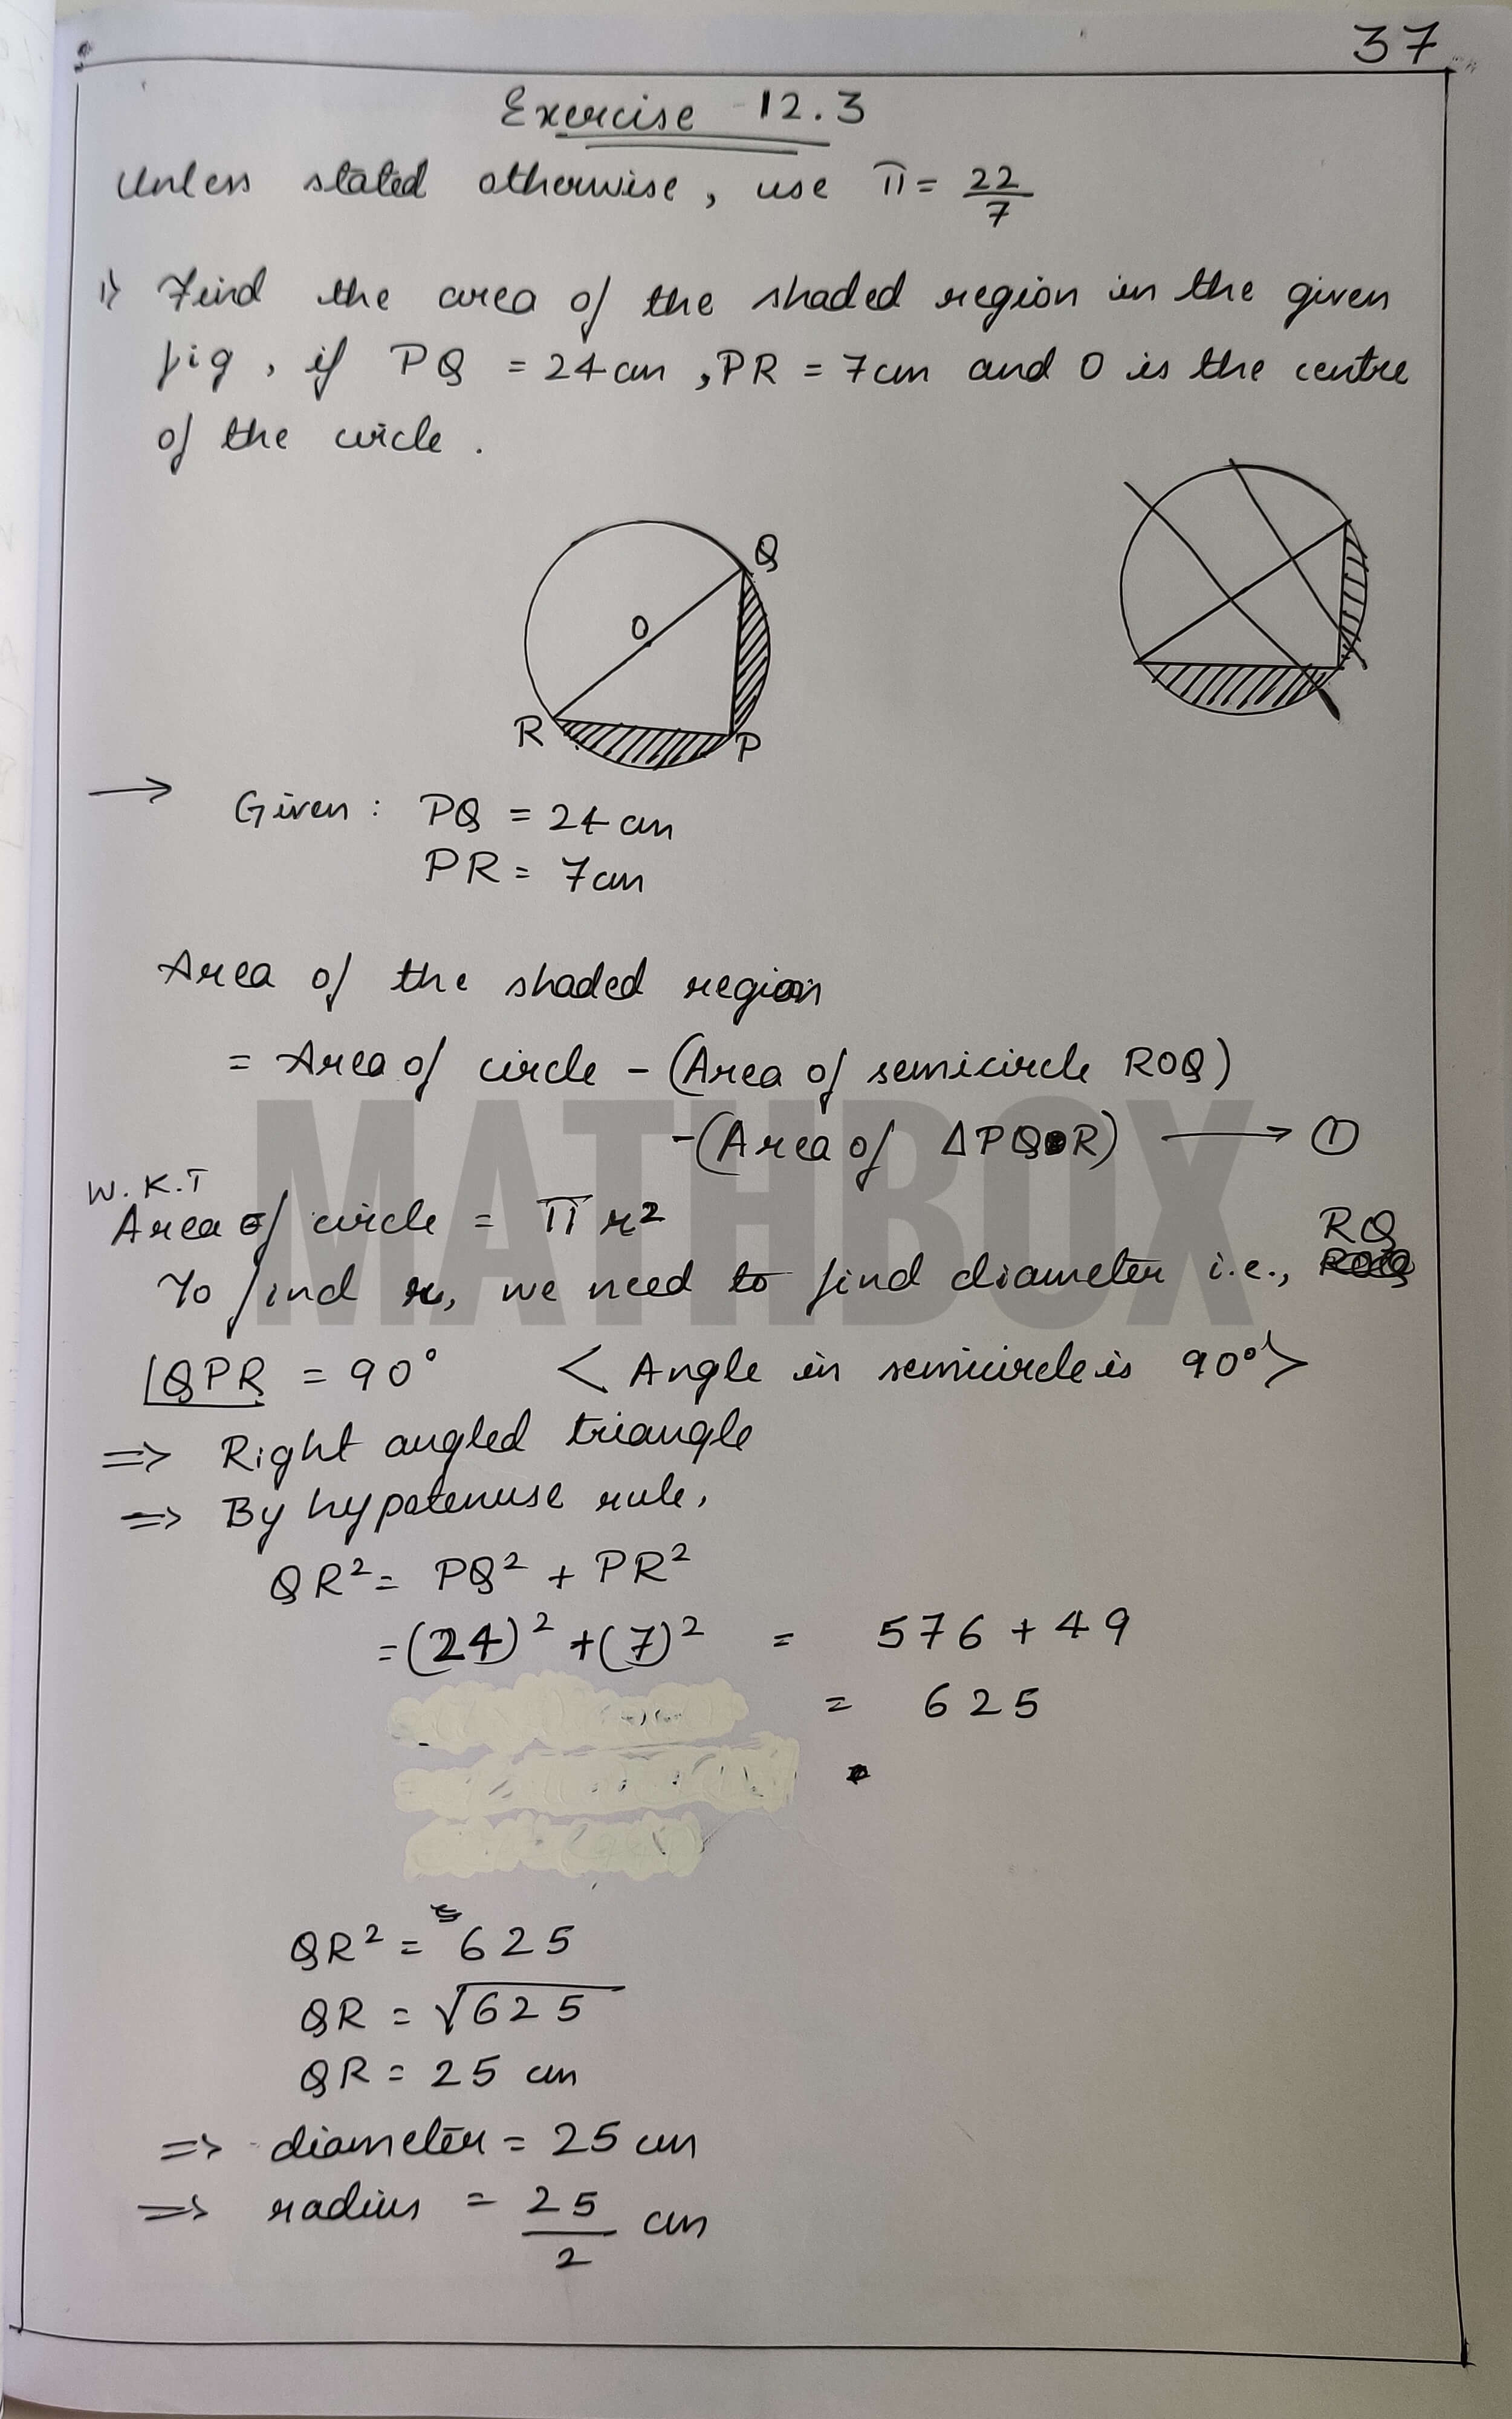 37
Exercise 12.3
Unless stated otherwise, use π = 22/7
1) Find the area of the shaded region in the given
fig, if PQ = 24 cm, PR = 7cm and O is the centre
of the circle.
Q
O
R
P
→ Given: PQ = 24 cm
PR = 7cm
Area of the shaded region
= Area of circle - (Area of semicircle ROQ)
-(Area of ΔPQR) → ①
W.K.T
Area of circle = πr²
RQ
To find r, we need to find diameter i.e.,
∠QPR = 90° < Angle in semicircle is 90° >
=> Right angled triangle
=> By hypotenuse rule,
QR² = PQ² + PR²
= (24)² + (7)² = 576 + 49
= 625
QR² = 625
QR = √625
QR = 25 cm
=> diameter = 25 cm
=> radius = 25/2 cm
MATHBOX